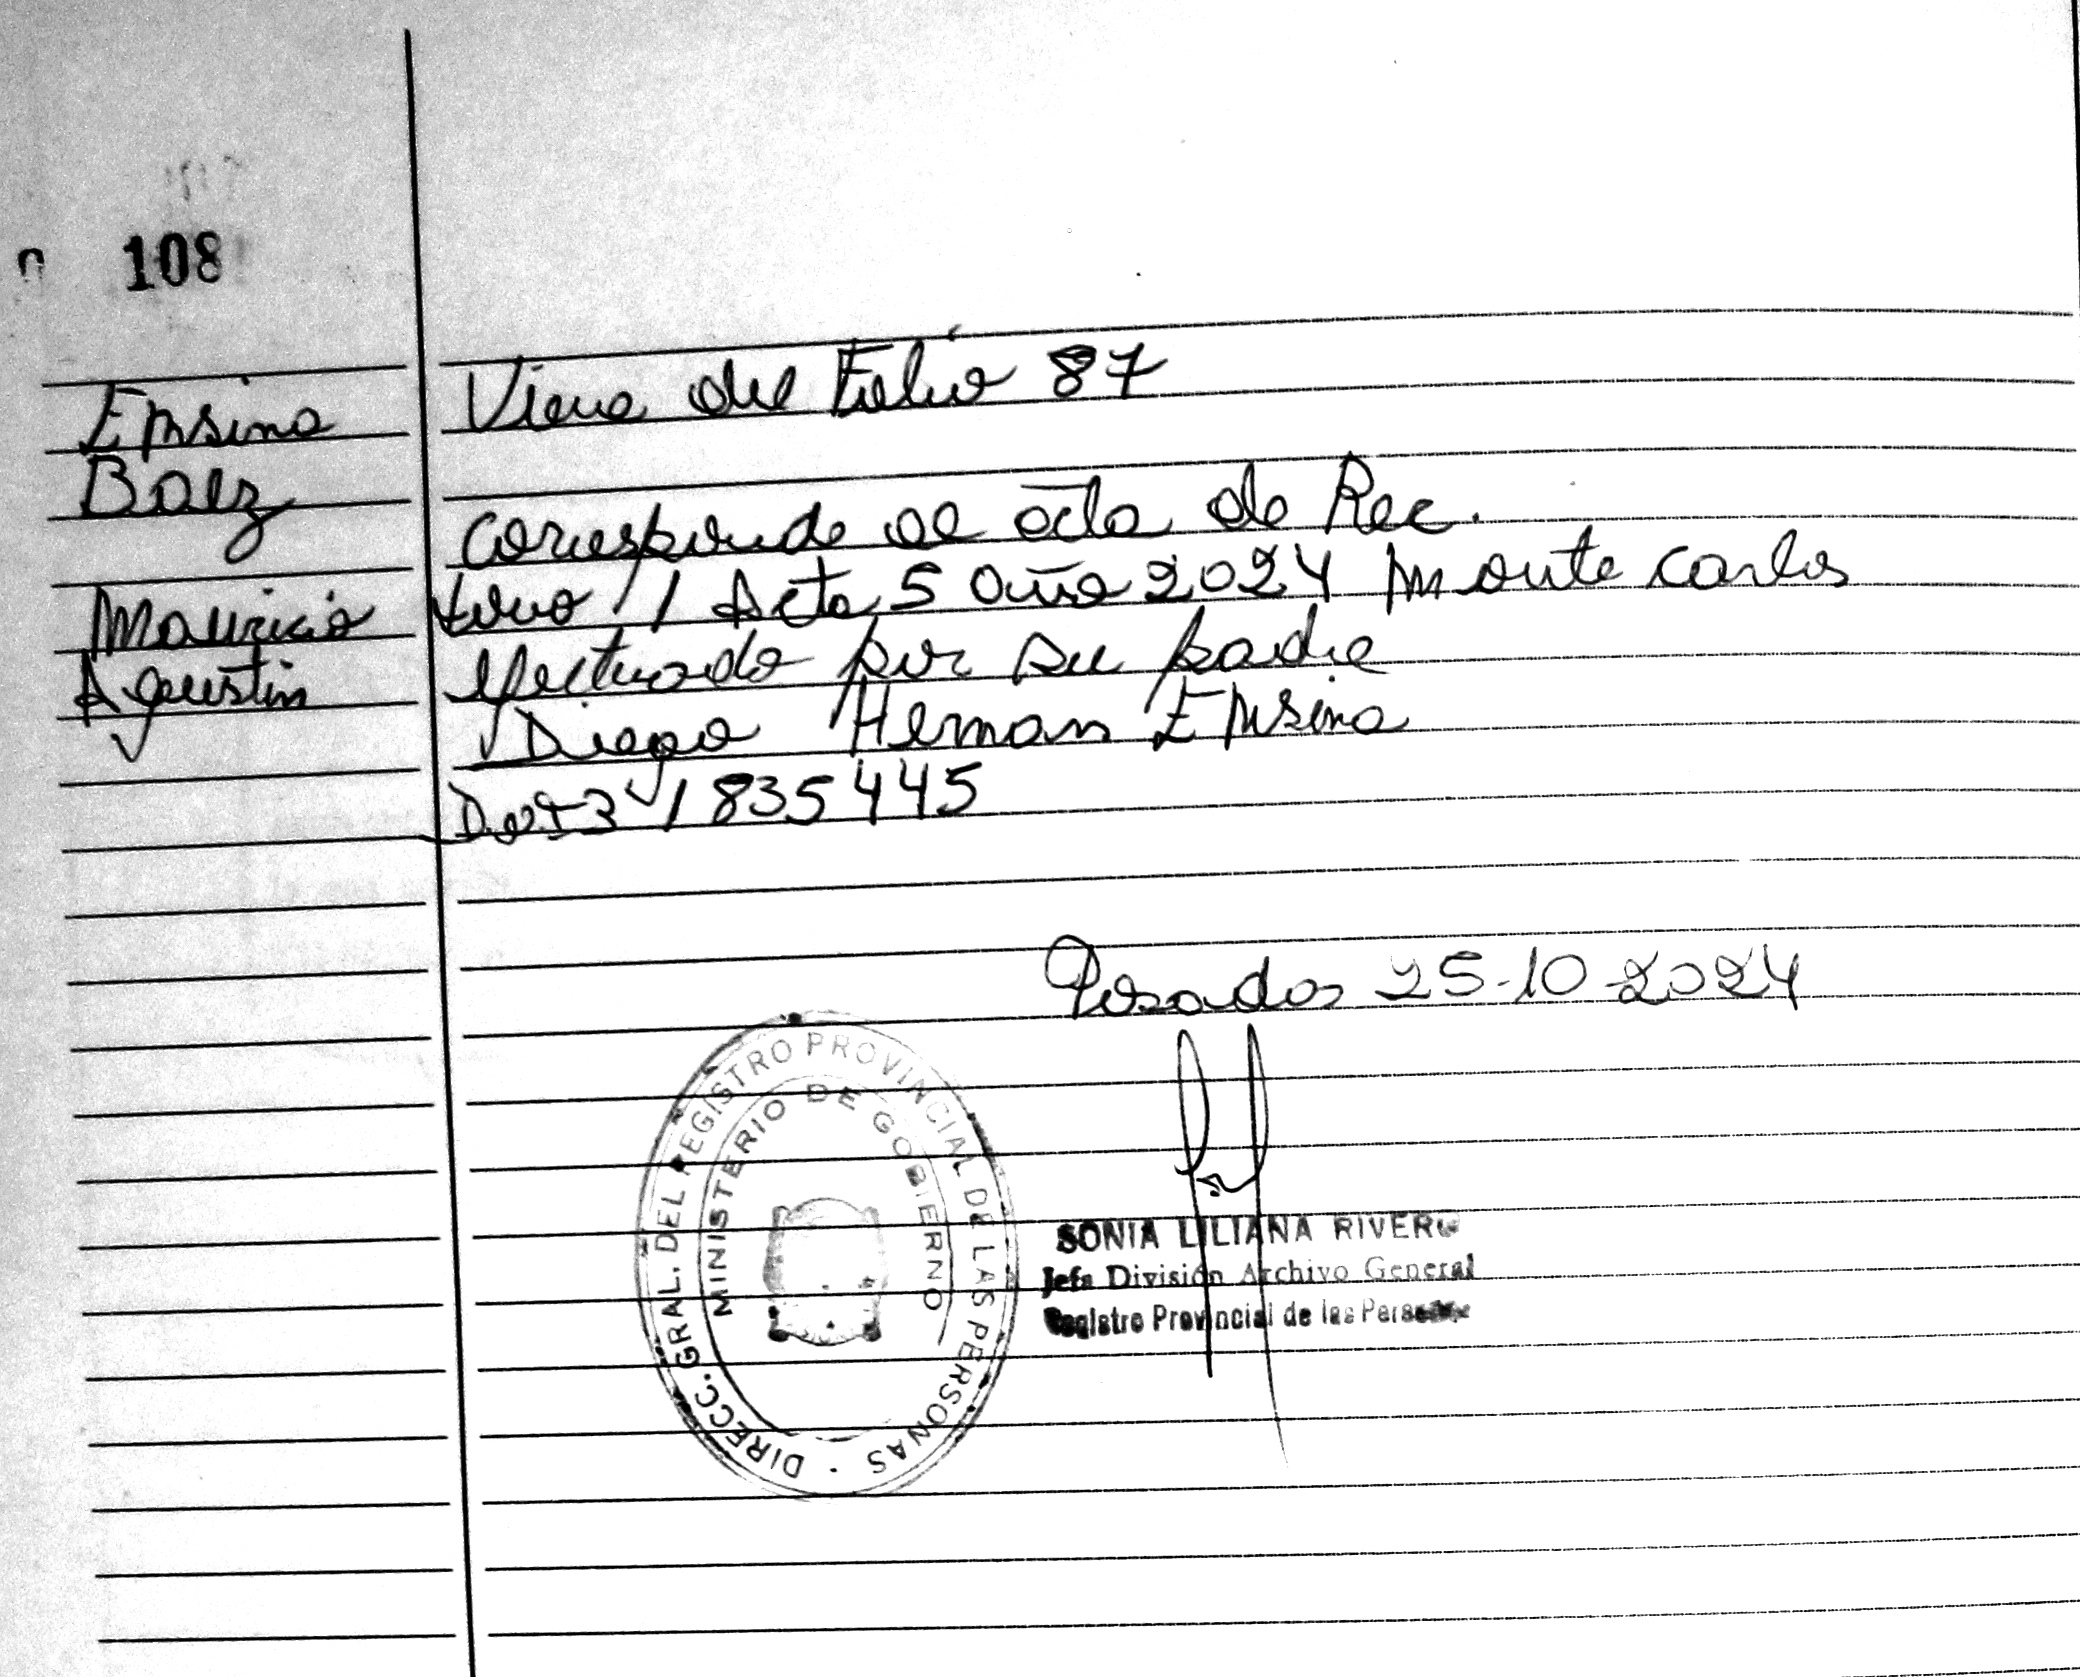 108
Ensina
Baez
Mauricio
Agustin
Viene del Folio 87
Corresponde al acta de Rec.
tomo 1 Acta 5 año 2024 Monte Carlos
efectuado por su padre
Diego Hernan Ensina
31835445
Posadas 25-10-2024
DIRECC. GRAL. DEL REGISTRO PROVINCIAL DE LAS PERSONAS
MINISTERIO DE GOBIERNO
SONIA LILIANA RIVERO
Jefa División Archivo General
Registro Provincial de las Personas